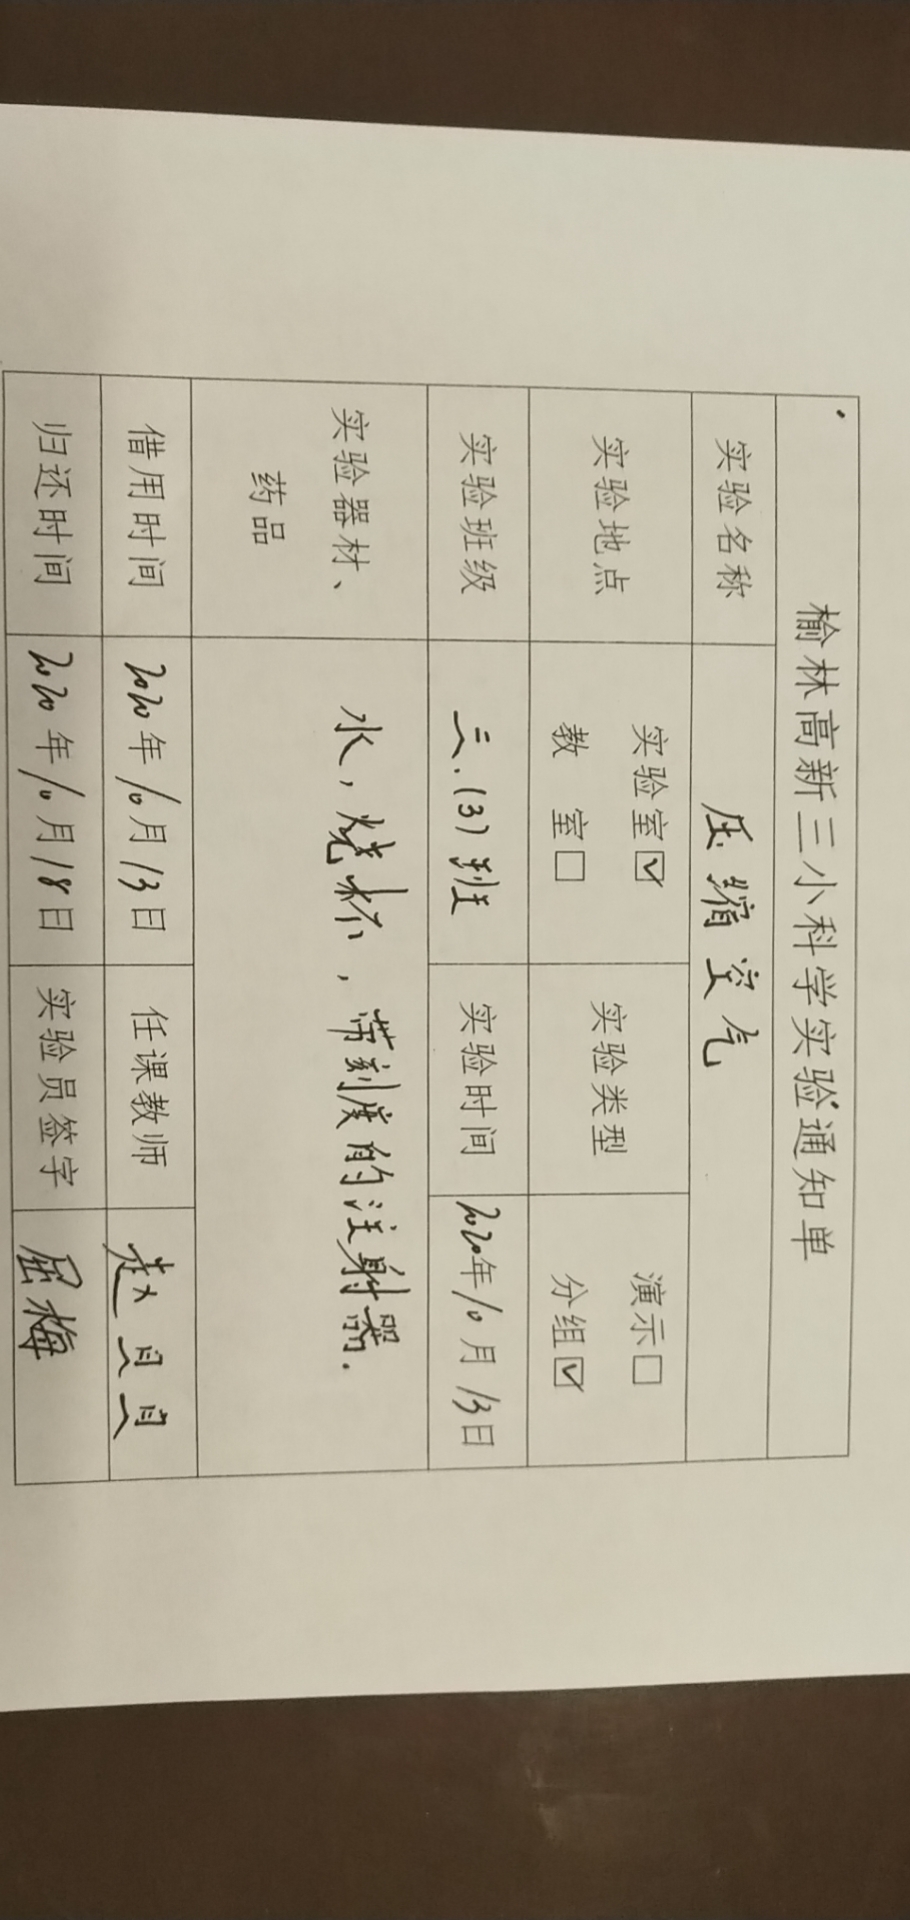 榆林高新三小科学实验通知单
实验名称 压缩空气
实验地点 实验室☑ 教 室□ 实验类型 演示□ 分组☑
实验班级 三.(3)班 实验时间 2020年10月13日
实验器材、药品 水，烧杯，带刻度的注射器.
借用时间 2020年10月13日 任课教师 赵贝贝
归还时间 2020年10月18日 实验员签字 屈梅